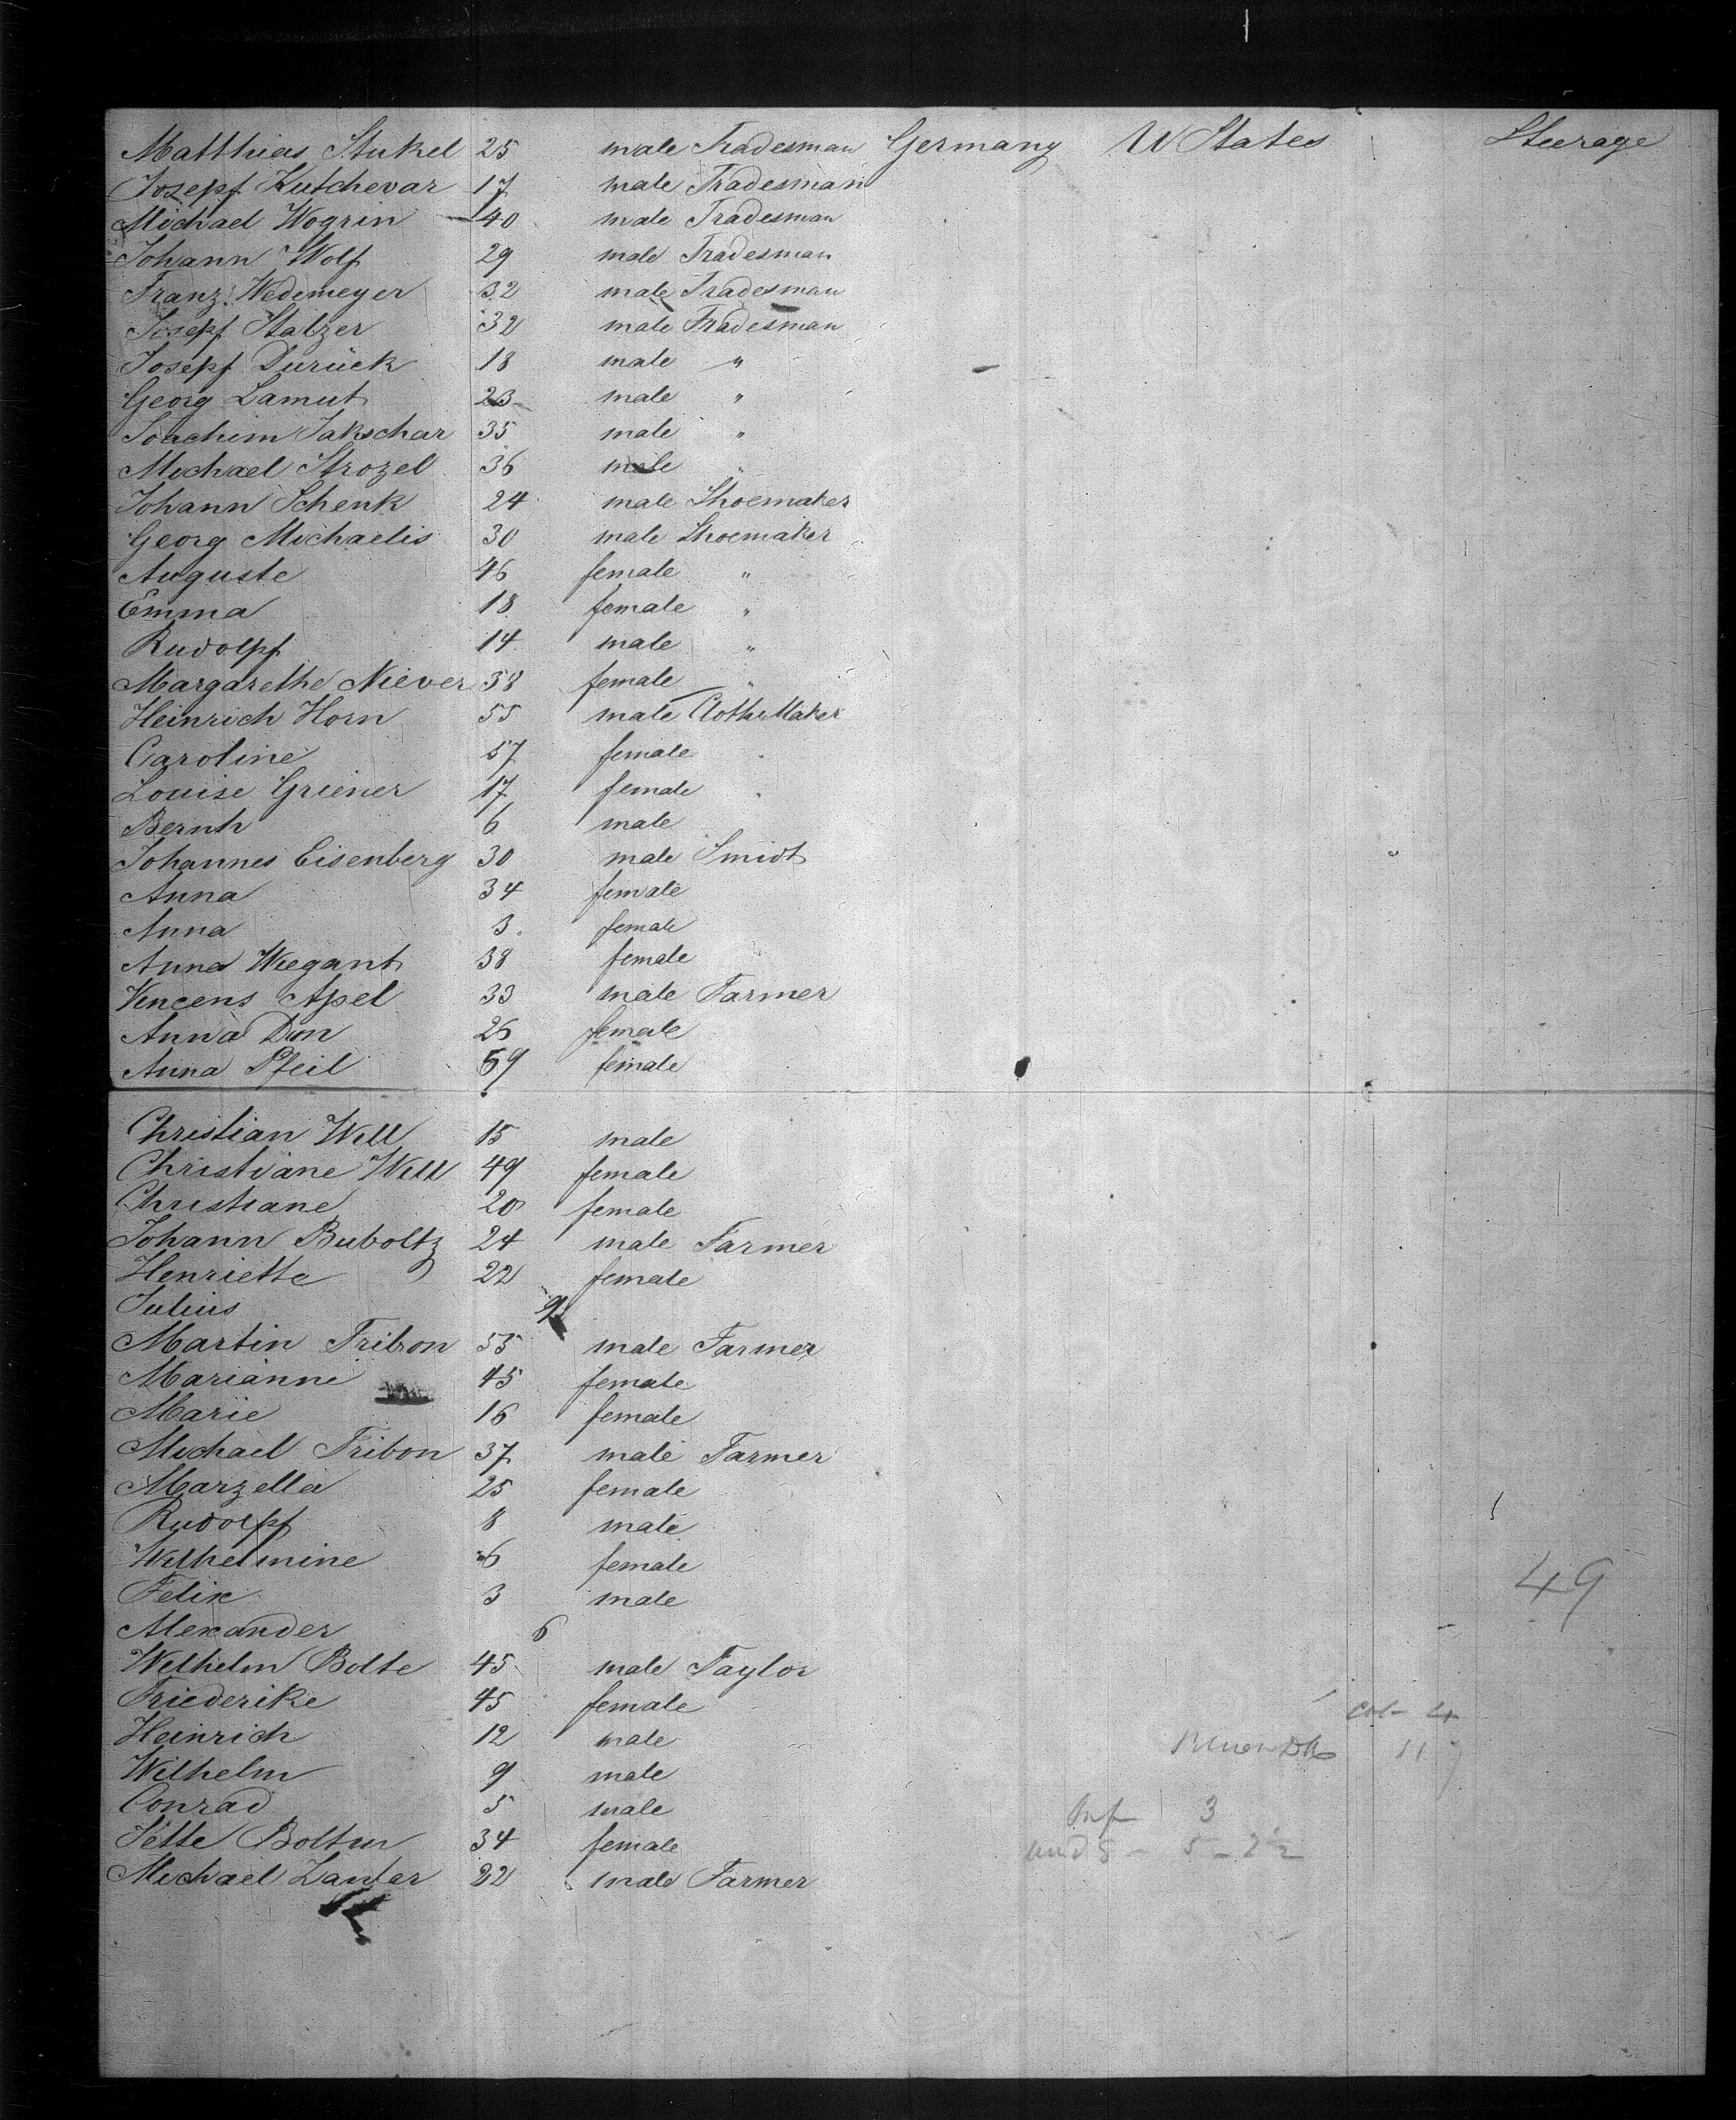 Matthias Stukel 25 male Tradesman Germany U States Steerage
Josepf Kutchevar 17 male Tradesman
Michael Wogrin 40 male Tradesman
Johann Wolf 29 male Tradesman
Franz Wedemeyer 32 male Tradesman
Josepf Stalzer 32 male Tradesman
Josepf Durück 18 male "
Georg Lamut 23 male "
Joachim Jakschar 35 male "
Michael Strozel 36 male "
Johann Schenk 24 male Shoemaker
Georg Michaelis 30 male Shoemaker
Auguste 46 female "
Emma 18 female "
Rudolpf 14 male "
Margarethe Niever 38 female "
Heinrich Horn 55 male Clothe Maker
Caroline 57 female
Louise Griener 17 female
Bernh 6 male
Johannes Eisenberg 30 male Smidt
Anna 34 female
Anna 3 female
Anna Wiegant 38 female
Vincens Apel 33 male Farmer
Anna Don 26 female
Anna Pfeil 59 female
Christian Will 15 male
Christiane Will 49 female
Christiane 20 female
Johann Buboltz 24 male Farmer
Henriette 22 female
Julius 9
Martin Tribon 55 male Farmer
Marianne 45 female
Marie 16 female
Michael Tribon 37 male Farmer
Marzella 25 female
Rudolpf 8 male
Wilhelmine 6 female
Felix 3 male
49
Alexander 6
Wilhelm Bolte 45 male Taylor
Friederike 45 female
Heinrich 12 male
Wilhelm 9 male
11
Conrad 5 male
Inf 3
Jette Boltun 34 female
und 5 - 5 - 2½
Michael Zanter 22 male Farmer